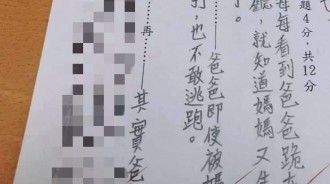 題4分，共12
每每看到爸爸跪
聽，就知道媽媽又生
了。
……爸爸即使被媽
打，也不敢逃跑。
再……其實爸